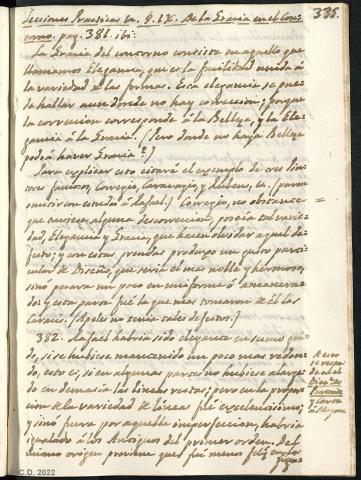 335.
Lecciones Practicas &a. §. 17. De la Gracia en el Con-
torno. pag. 381. ibi:
La Gracia del contorno consiste en aquello que
llamamos Elegancia, que es la facilidad unida á
la variedad de las formas. Esta elegancia se pue-
de hallar aun donde no hay correccion; porque
la correccion corresponde á la Belleza, y la Ele-
gancia á la Gracia. (Pero donde no haya Belleza
podrá haver Gracia?)
Para explicar esto citaré el exemplo de tres Pin-
tores famosos, Corregio, Caravagio, y Albano, &a. (parece
omitir con estudio á Rafael.) Corregio, no obstante
que tuviese alguna incorreccion, poseía tal varie-
dad, Elegancia y Gracia, que hacen olvidar aquel de-
fecto; y con estas prendas produxo un gusto parti-
cular de Diseño, que sería el mas noble y hermoso,
sino pecara un poco en uniforme ó amanera-
do: y esta parte fué la que mas tomaron de él los
Caraccis. (Apeles no tenia tales defectos.)
382. Rafael habria sido elegante en sumo gra-
do, si se hubiese mantenido un poco mas redon-
do, esto es, si en algunas partes no hubiese alarga-
do en demasía las lineas rectas; pero en la propor-
cion de la variedad de lineas fué excelentisimo;
y sino fuera por aquella imperfeccion, habria
igualado á los Antiguos del primer orden. Del
mismo origen proviene que fué menos feliz en las
A esto
se respon-
de al
y
C.D. 2022